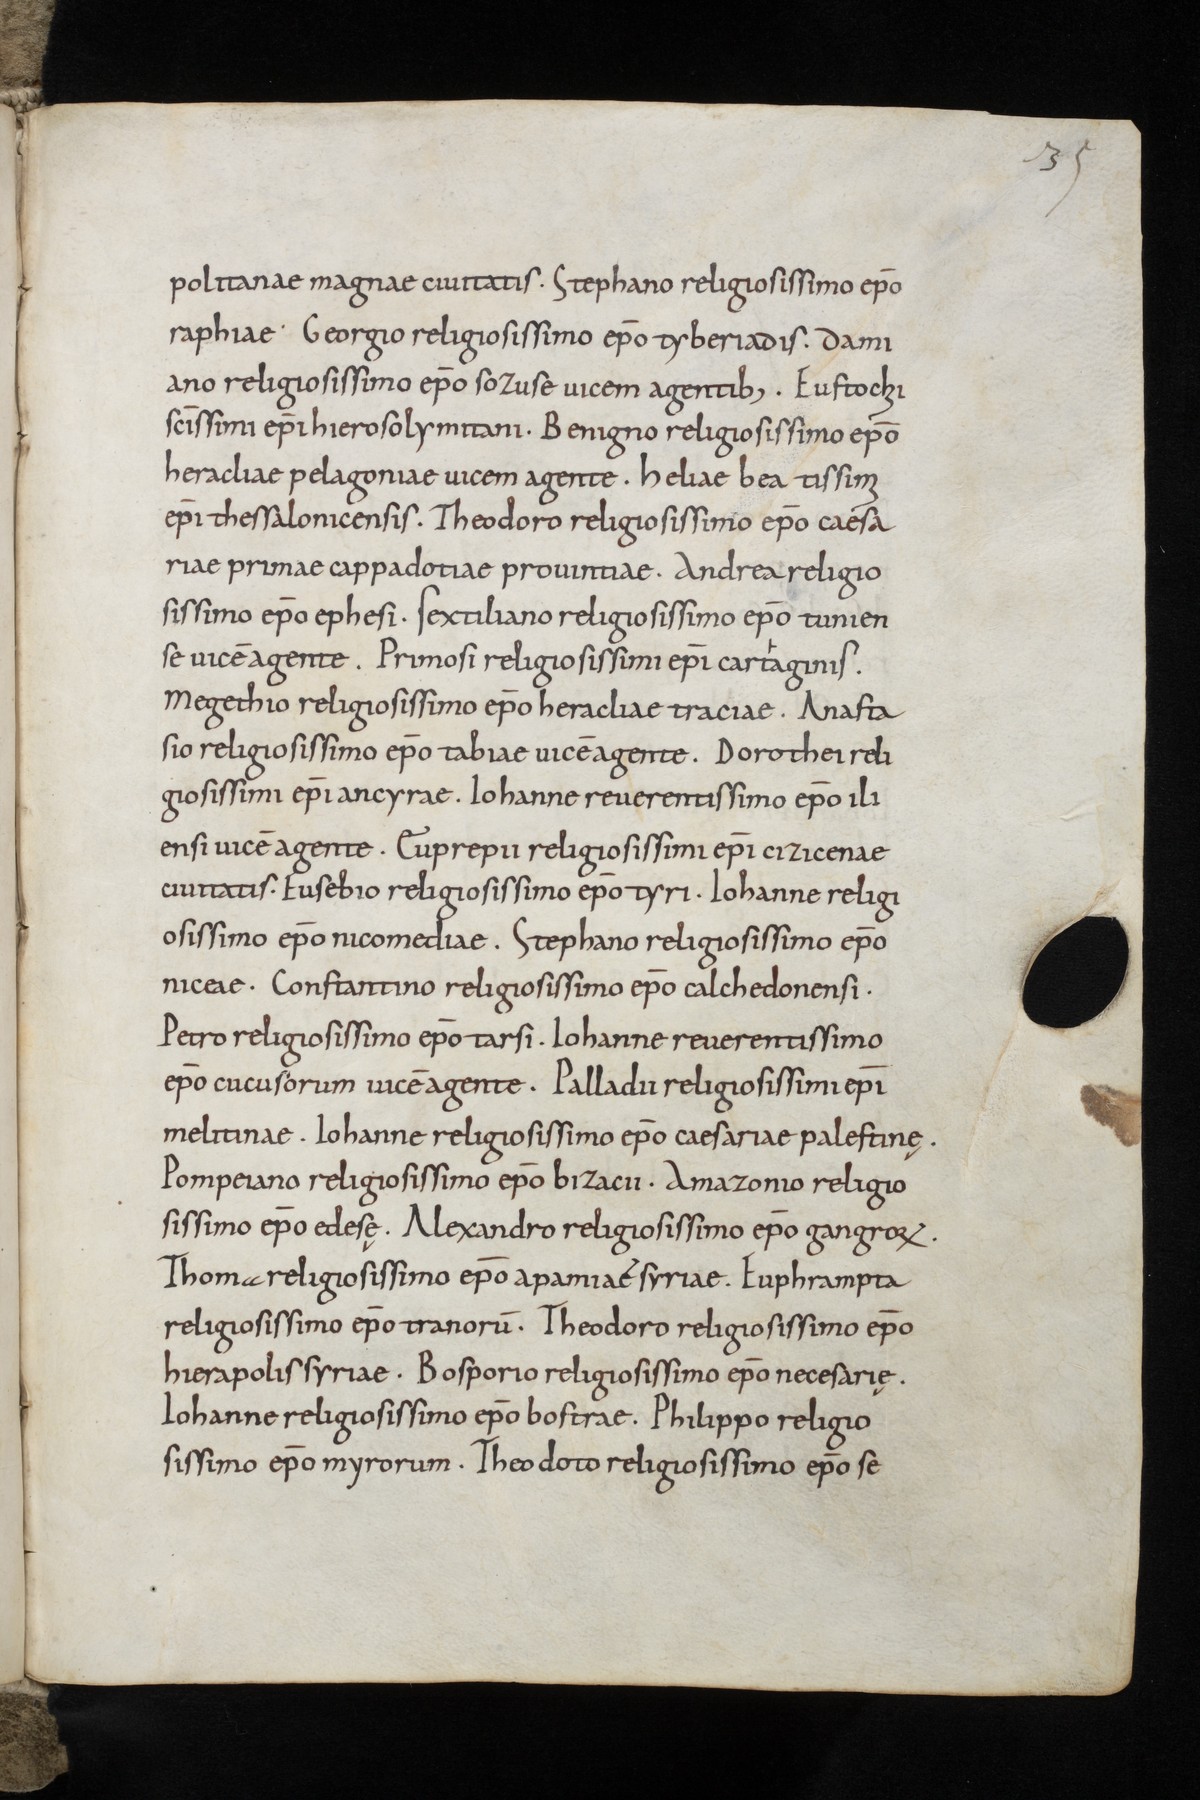 35
politanae magnae ciuitatis. Stephano religiosissimo ep̄o
raphiae. Georgio religiosissimo ep̄o tyberiadis. Dami
ano religiosissimo ep̄o sozuse uicem agentib; . Eustochi
scīssimi ep̄i hierosolymitani. Benigno religiosissimo ep̄o
heracliae pelagoniae uicem agente. heliae beatissimi
ep̄i thessalonicensis. Theodoro religiosissimo ep̄o caesa
riae primae cappadotiae prouintiae. Andrea religio
sissimo ep̄o ephesi. Sextiliano religiosissimo ep̄o tunien
se uicē agente. Primosi religiosissimi ep̄i cartaginis.
Megethio religiosissimo ep̄o heracliae traciae. Anasta
sio religiosissimo ep̄o tabiae uicē agente. Dorothei reli
giosissimi ep̄i ancyrae. Iohanne reuerentissimo ep̄o ili
ensi uicē agente. Euprepii religiosissimi ep̄i cizicenae
ciuitatis. Eusebio religiosissimo ep̄o tyri. Iohanne religi
osissimo ep̄o nicomediae. Stephano religiosissimo ep̄o
niceae. Constantino religiosissimo ep̄o calchedonensi.
Petro religiosissimo ep̄o tarsi. Iohanne reuerentissimo
ep̄o cucusorum uicē agente. Palladii religiosissimi ep̄i
melitinae. Iohanne religiosissimo ep̄o caesariae palestinę.
Pompeiano religiosissimo ep̄o bizacii. Amazonio religio
sissimo ep̄o edesę. Alexandro religiosissimo ep̄o gangroꝝ.
Thoma religiosissimo ep̄o apamiae syriae. Euphrampta
religiosissimo ep̄o tranorū. Theodoro religiosissimo ep̄o
hierapolis syriae. Bosporio religiosissimo ep̄o necesarię.
Iohanne religiosissimo ep̄o bostrae. Philippo religio
sissimo ep̄o myrorum. Theodoto religiosissimo ep̄o se